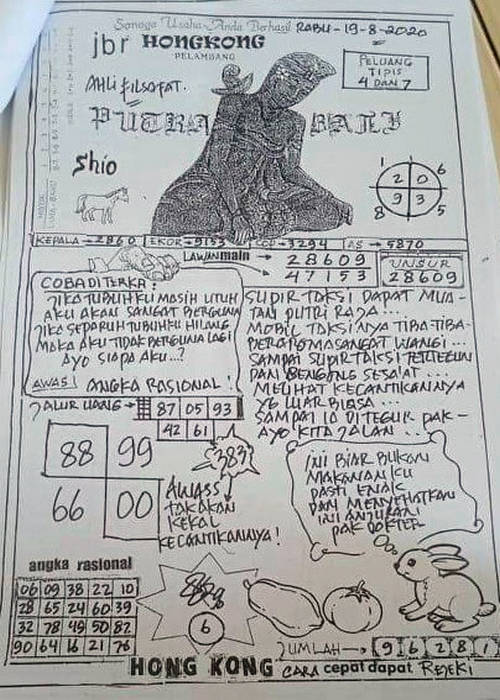 Semoga Usaha Anda Berhasil RABU-19-8-2020
jbr HONGKONG
PELAMBANG
AHLI FILSAFAT.
PELUANG
TIPIS
4 DAN 7
PUTRA BALI
Shio
1 6
2 0
9 3
8 5
KEPALA → 2860 EKOR → 9153 COP → 3294 AS → 5870
LAWAN main → 28609
47153
UNSUR
28609
COBA DITERKA:
JIKA TUBUHKU MASIH UTUH
AKU AKAN SANGAT BERGUNA
JIKA SEPARUH TUBUHKU HILANG
MAKA AKU TIDAK BERGUNA LAGI
AYO SIAPA AKU...?
AWAS! ANGKA RASIONAL!
SUPIR TAKSI DAPAT MUA-
TAN PUTRI RAJA...
MOBIL TAKSINYA TIBA-TIBA-
BERAROMA SANGAT WANGI...
SAMPAI SUPIR TAKSI TERTEGUN
DAN BENGONG SESAAT...
MELIHAT KECANTIKANNYA
YG LUAR BIASA...
SAMPAI IA DITEGUR PAK-
AYO KITA JALAN...
JALUR UANG → 87 05 93
42 61
383?
88 99
66 00
AWASS
TAK AKAN
KEKAL
KECANTIKANNYA!
INI BIAR BUKAN
MAKANAN KU
PASTI ENAK
DAN MENYEHATKAN
INI ANJURAN
PAK DOKTER
angka rasional
06 09 38 22 10
28 65 24 60 39
32 78 49 50 82
90 64 16 21 76
6
JUMLAH → 9 6 2 8 1
HONG KONG CARA cepat dapat REJEKI